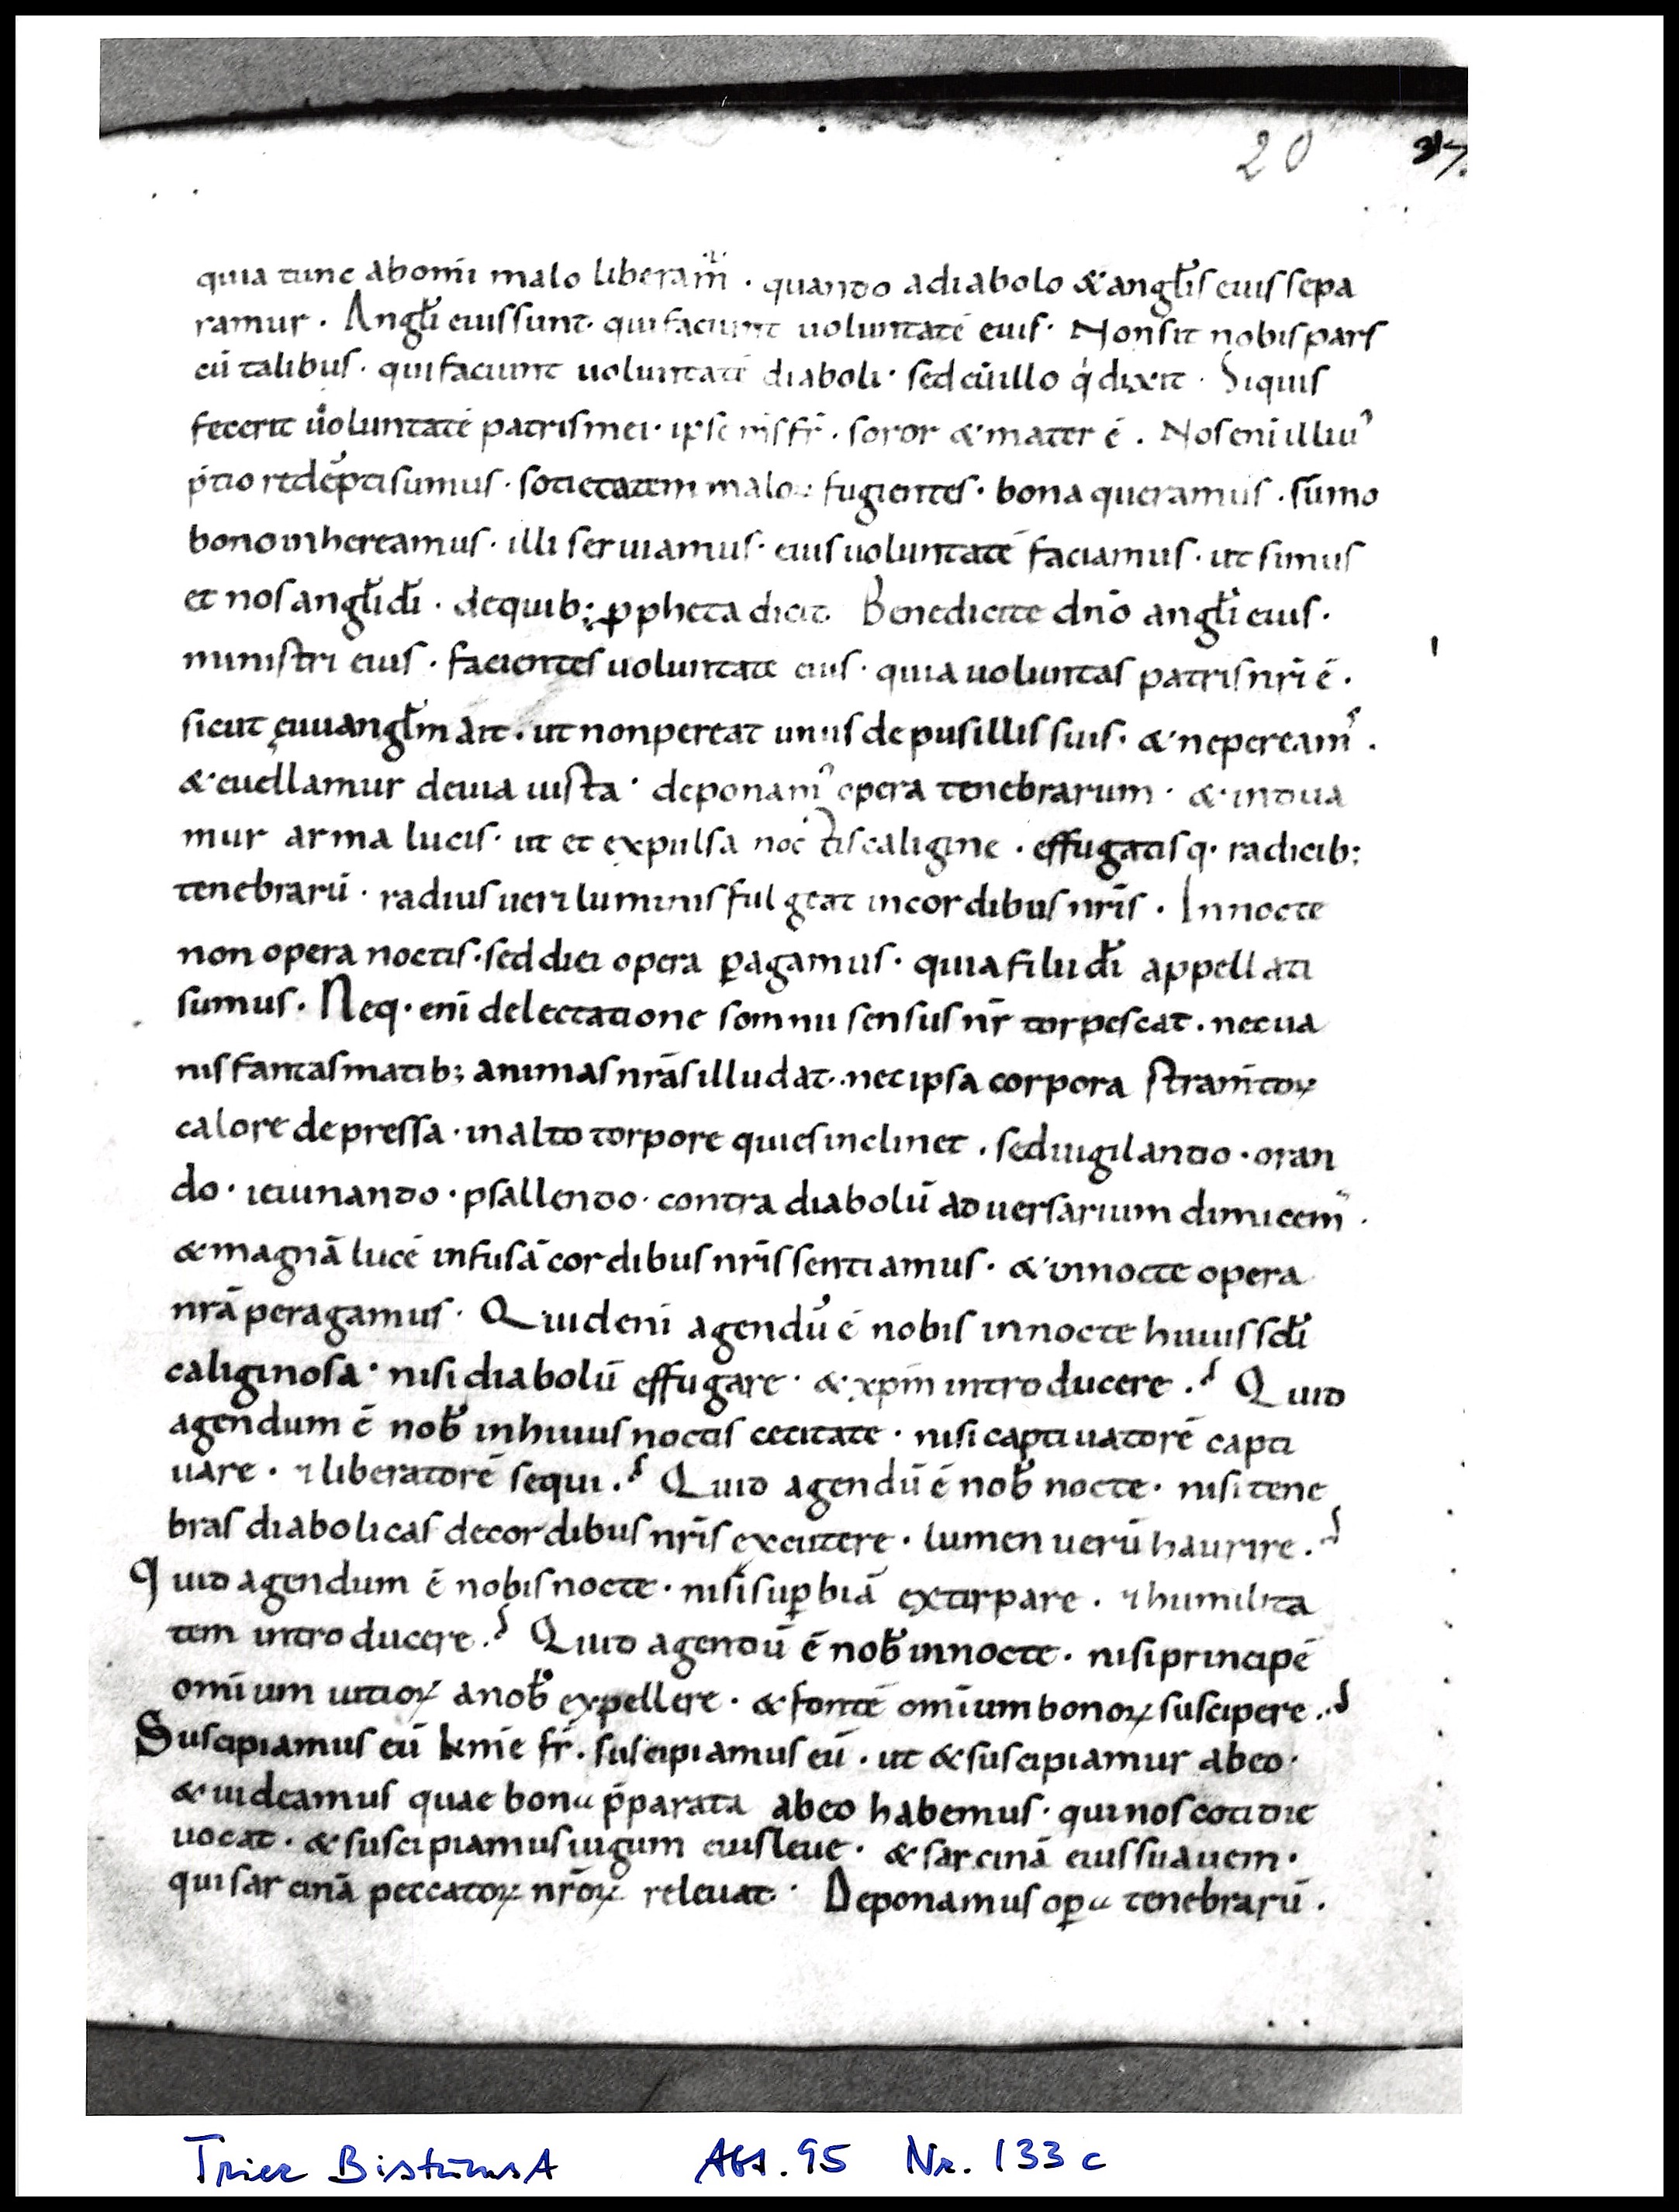 20 37.
quia tunc ab om̄i malo liberam̄ . quando a diabolo & angl̄is eius sepa
ramur . Angl̄i eius sunt . qui faciunt uoluntatē eius . Non sit nobis pars
cū talibus . qui faciunt uoluntatē diaboli . sed cū illo q' dixit . Siquis
fecerit uoluntatē patris mei . ipse m̄s fr̄ . soror & mater ē . Nos eni illiuˀ
p̄tio redēpti sumus . societatem maloꝝ fugientes . bona queramus . sūmo
bono inhereamus . illi seruiamus . eius uoluntatē faciamus . ut simus
et nos angl̄i dī . de quib; ꝓpheta dicit . Benedicite dnō angl̄i eius .
ministri eius . facientes uoluntate eius . quia uoluntas patris nr̄i ē .
sicut ęuuangl̄m ait . ut non pereat unus de pusillis suis . & ne pereamˀ .
& euellamur de uia iusta . deponamˀ opera tenebrarum . & indua
mur arma lucis . ut et expulsa noctis caligine . effugatisq . radicib;
tenebrarū . radius ueri luminis fulgeat in cordibus nr̄is . In nocte
non opera noctis . sed diei opera ꝑagamus . quia filii dī appellati
sumus . Neq . enī delectatione somnii sensus nr̄ torpescat . nec ua
nis fantasmatib; animas nr̄as illudat . nec ipsa corpora stram̄toꝝ
calore depressa . in alto torpore quies inclinet . sed uigilando . oran
do . ieiunando . psallendo . contra diabolū aduersarium dimicemˀ .
& magnā lucē infusā cordibus nr̄is sentiamus . & in nocte opera
nrā peragamus . Quid eni agendū ē nobis in nocte huius scl̄i
caliginosa . nisi diabolū effugare . & xp̄m introducere . Quid
agendum ē nob̄ in huius noctis cecitate . nisi captiuatorē capti
uare . ⁊ liberatorē sequi . Quid agendū ē nob̄ nocte . nisi tene
bras diabolicas de cordibus nr̄is excutere . lumen uerū haurire .
Quid agendum ē nobis nocte . nisi suꝑbiā extirpare . ⁊ humilita
tem introducere . Quid agendū ē nob̄ in nocte . nisi principē
omīum uitioꝝ a nob̄ expellere . & fontē omīum bonoꝝ suscipere .
Suscipiamus eū kmē fr̄ . suscipiamus eū . ut & suscipiamur ab eo .
& uideamus quae bona p̄parata ab eo habemus . qui nos cotidie
uocat . & suscipiamus iugum eius leue . & sarcinā eius suauem .
qui sarcinā peccatoꝝ nr̄oꝝ releuat . Deponamus oꝑa tenebrarū .
Trier BistumsA Abt. 95 Nr. 133 c